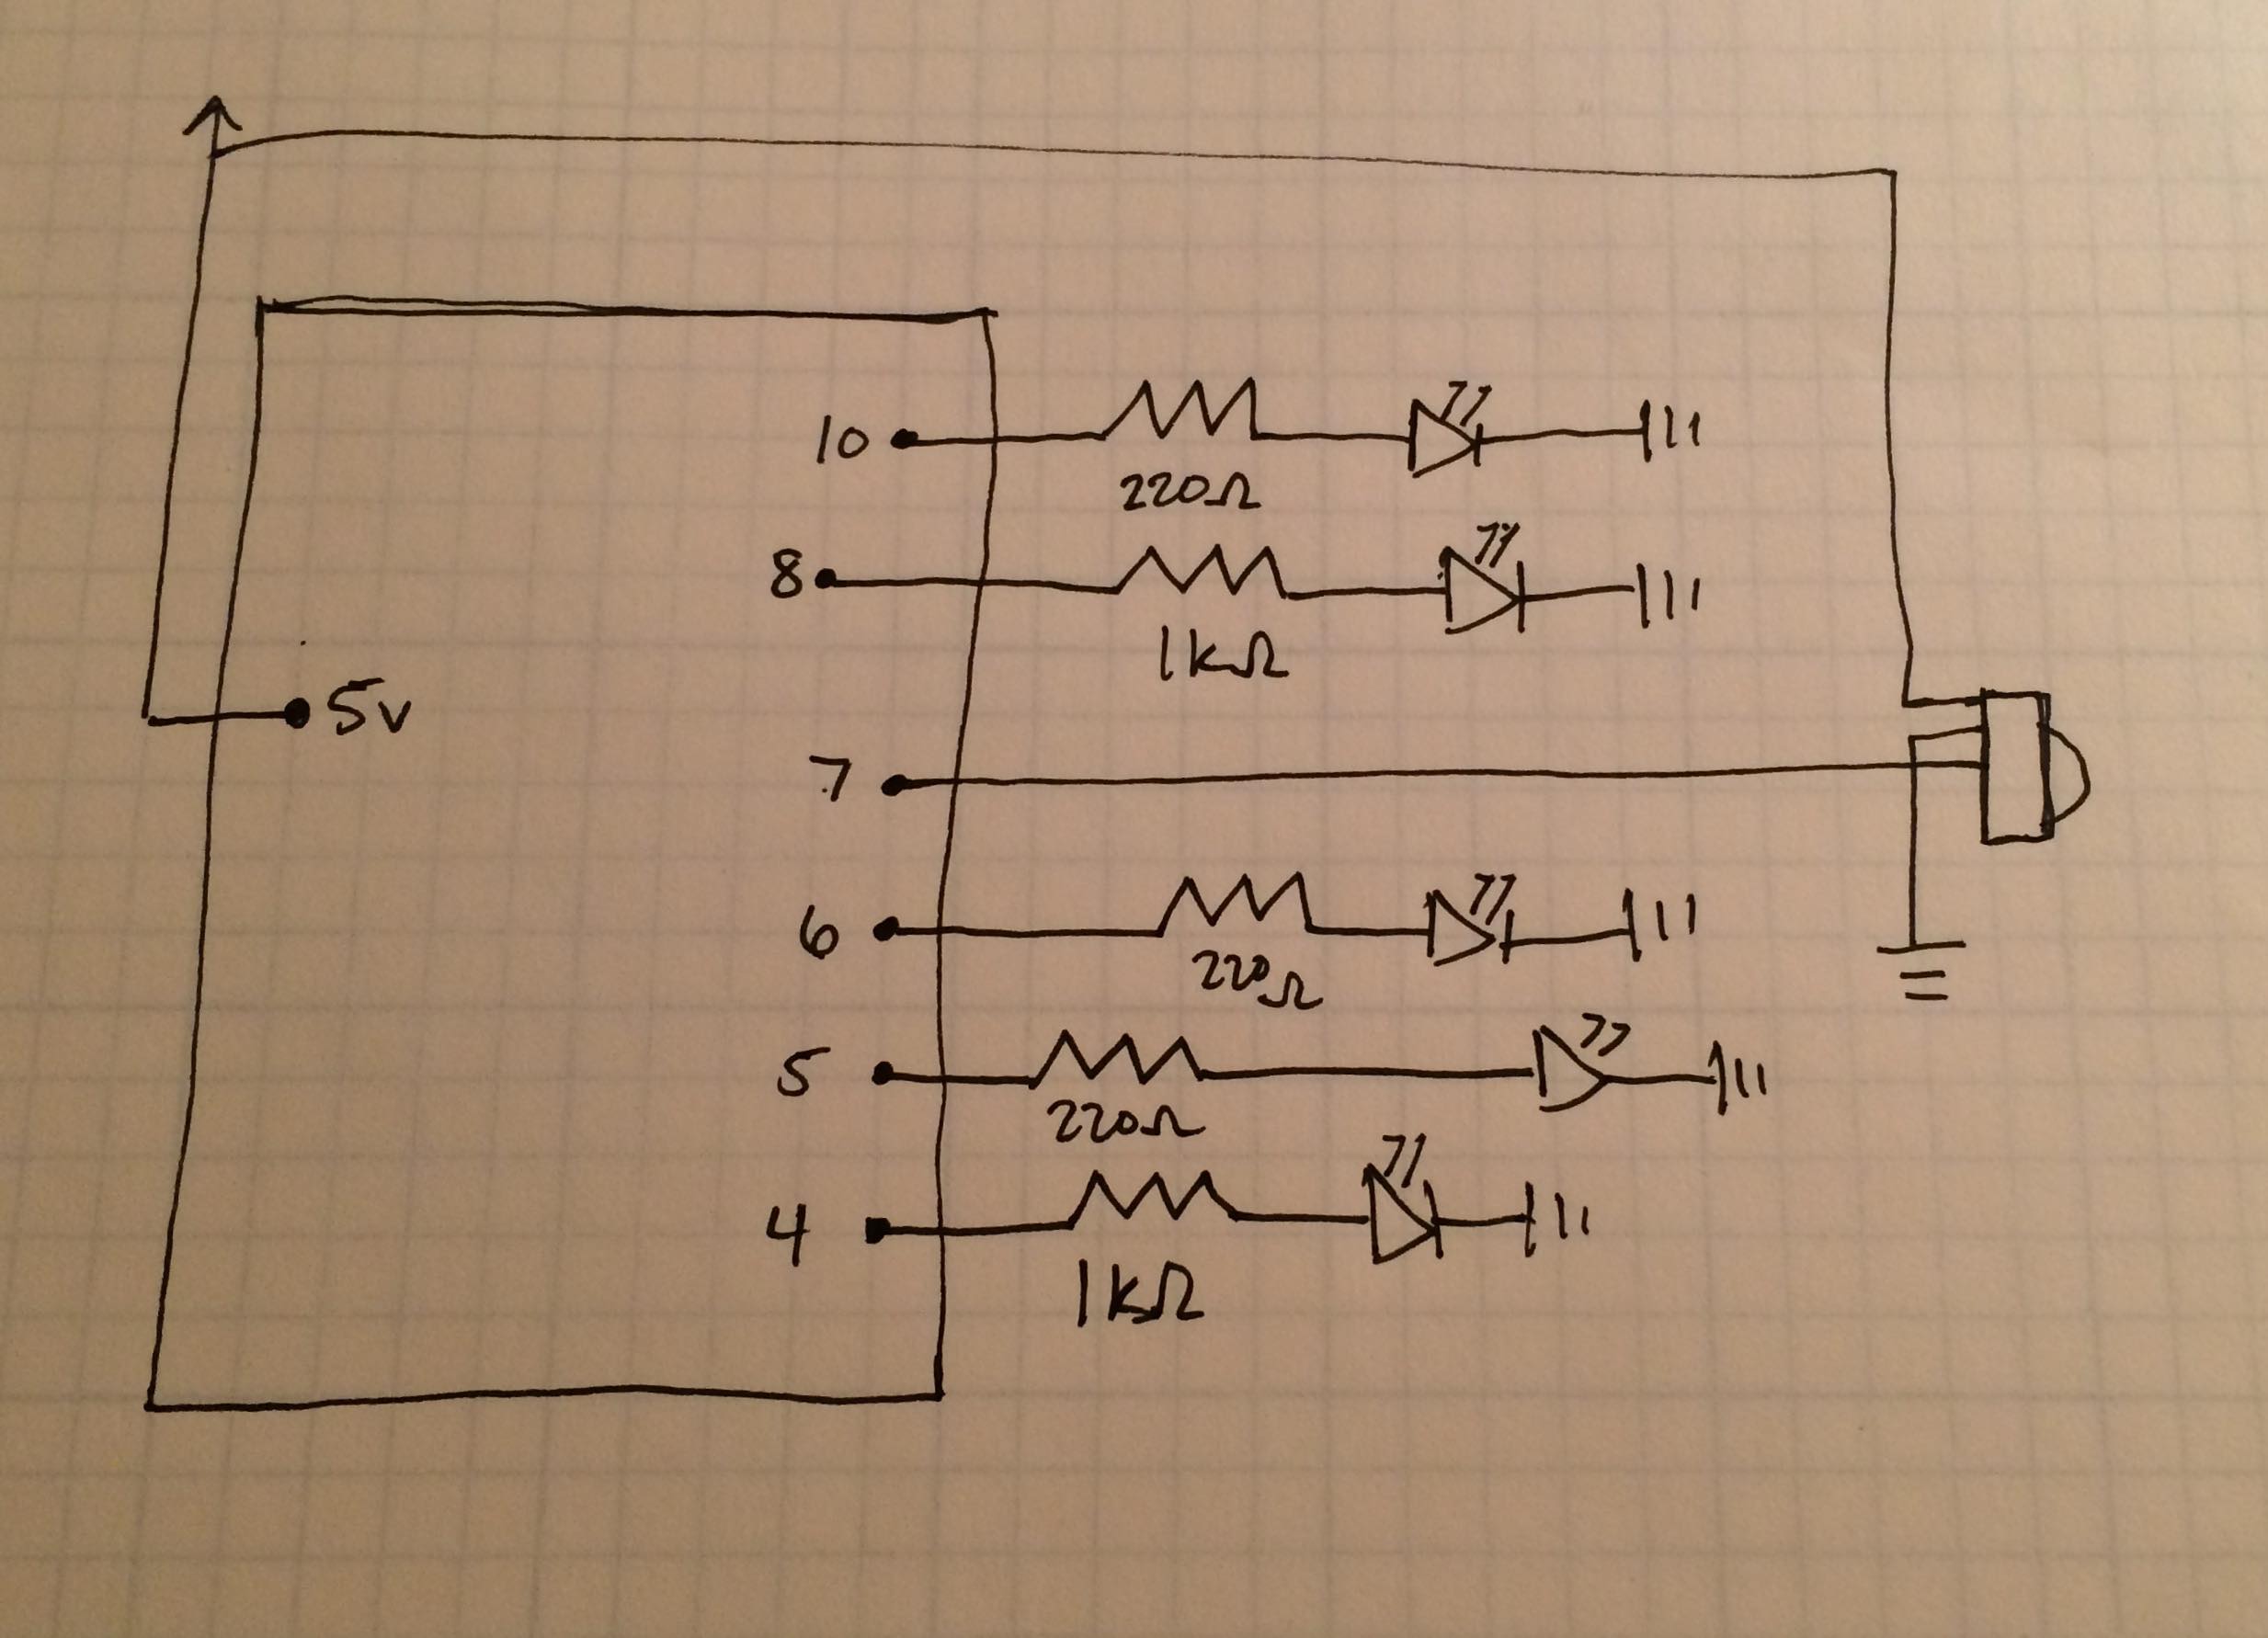 10
220Ω
8
1kΩ
5v
7
6
220Ω
5
220Ω
4
1kΩ